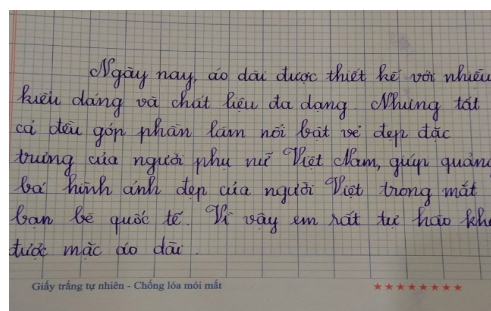 Ngày nay, áo dài được thiết kế với nhiều
kiểu dáng và chất liệu đa dạng. Nhưng tất
cả đều góp phần làm nổi bật vẻ đẹp đặc
trưng của người phụ nữ Việt Nam, giúp quảng
bá hình ảnh đẹp của người Việt trong mắt
bạn bè quốc tế. Vì vậy em rất tự hào khi
được mặc áo dài.
Giấy trắng tự nhiên - Chống lóa mỏi mắt